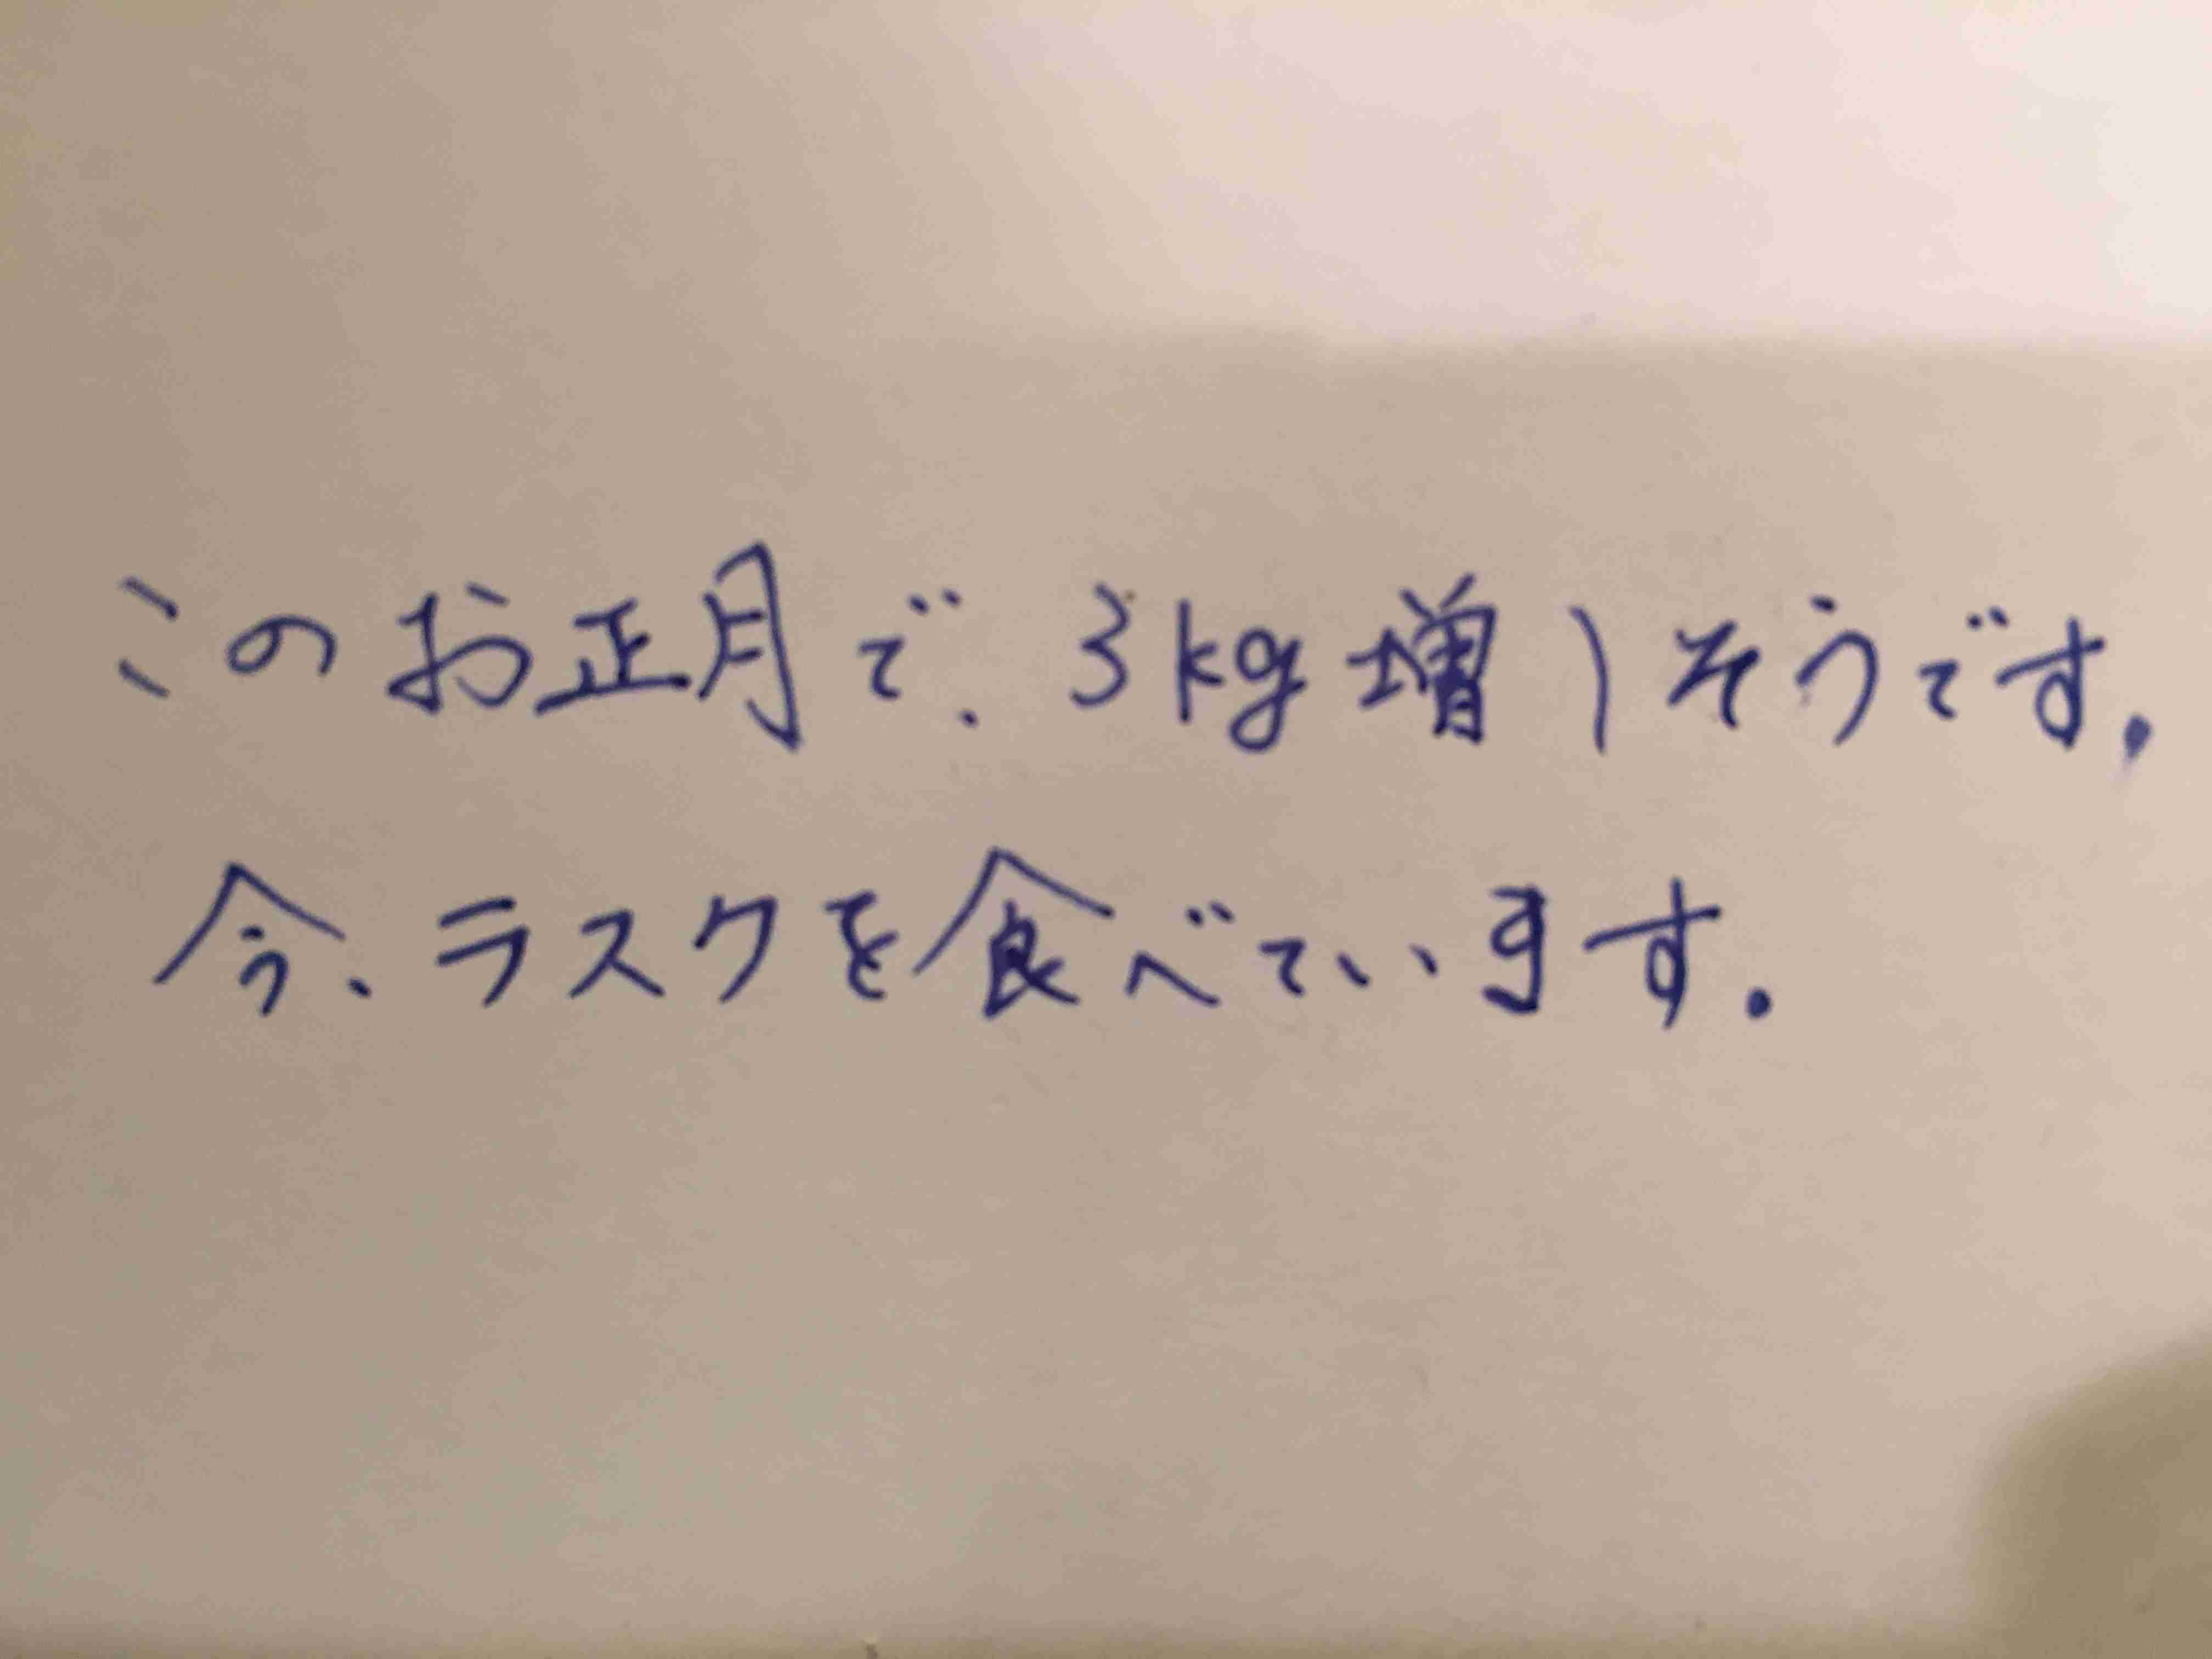 このお正月で、3kg増しそうです。
今、ラスクを食べています。